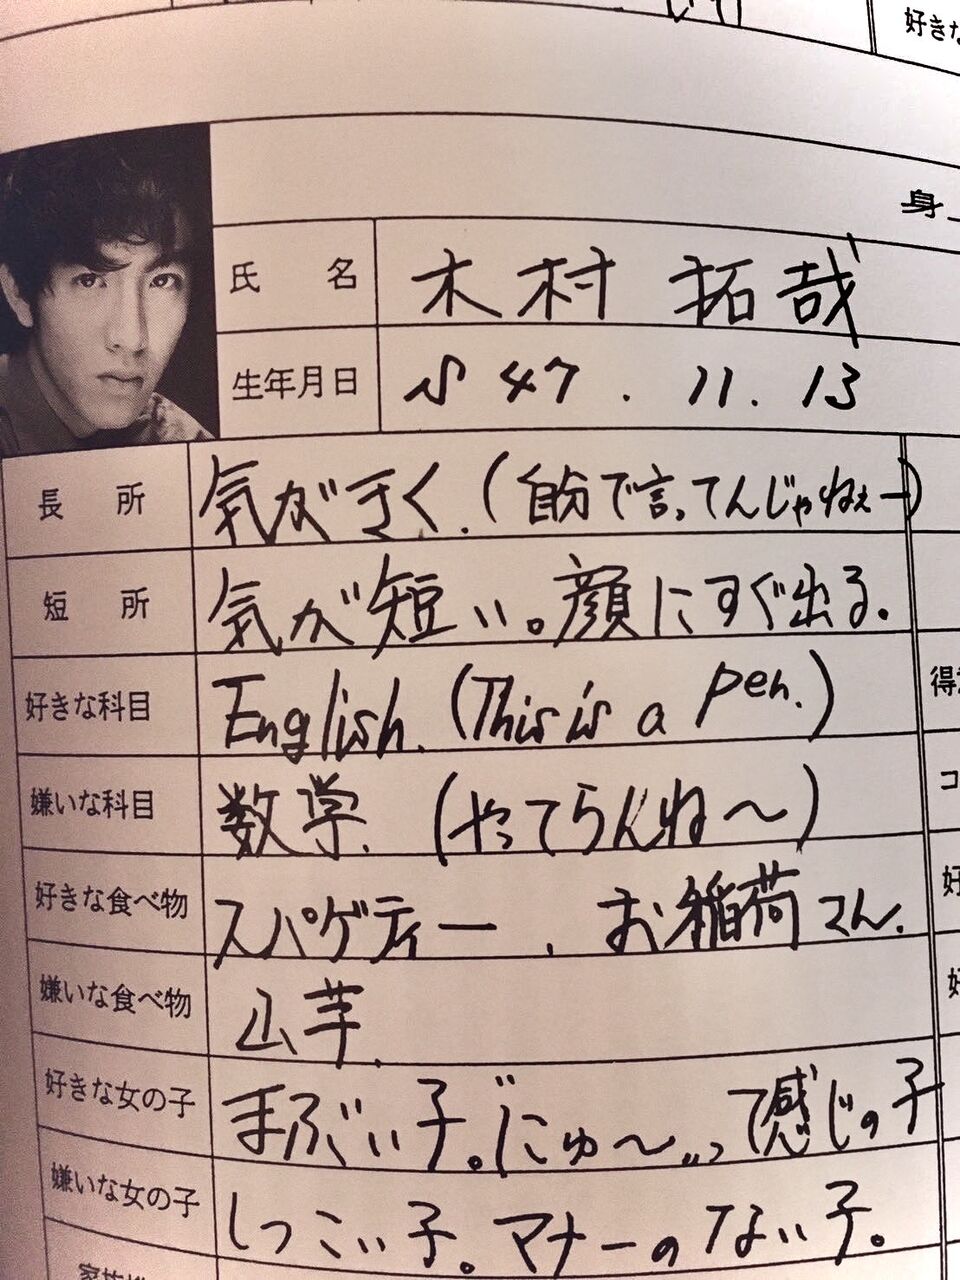 好きな
身上
氏 名 木村 拓哉
生年月日 S 47. 11. 13
長 所 気がきく.(自分で言ってんじゃねェー)
短 所 気が短い。顔にすぐ出る.
好きな科目 English. (This is a pen.)
嫌いな科目 数学. (やってらんね〜)
好きな食べ物 スパゲティー. お稲荷さん.
嫌いな食べ物 山芋.
好きな女の子 まぶい子。"にゅ〜"って感じの子
嫌いな女の子 しつこい子。マナーのない子。
得意
コ
好
好